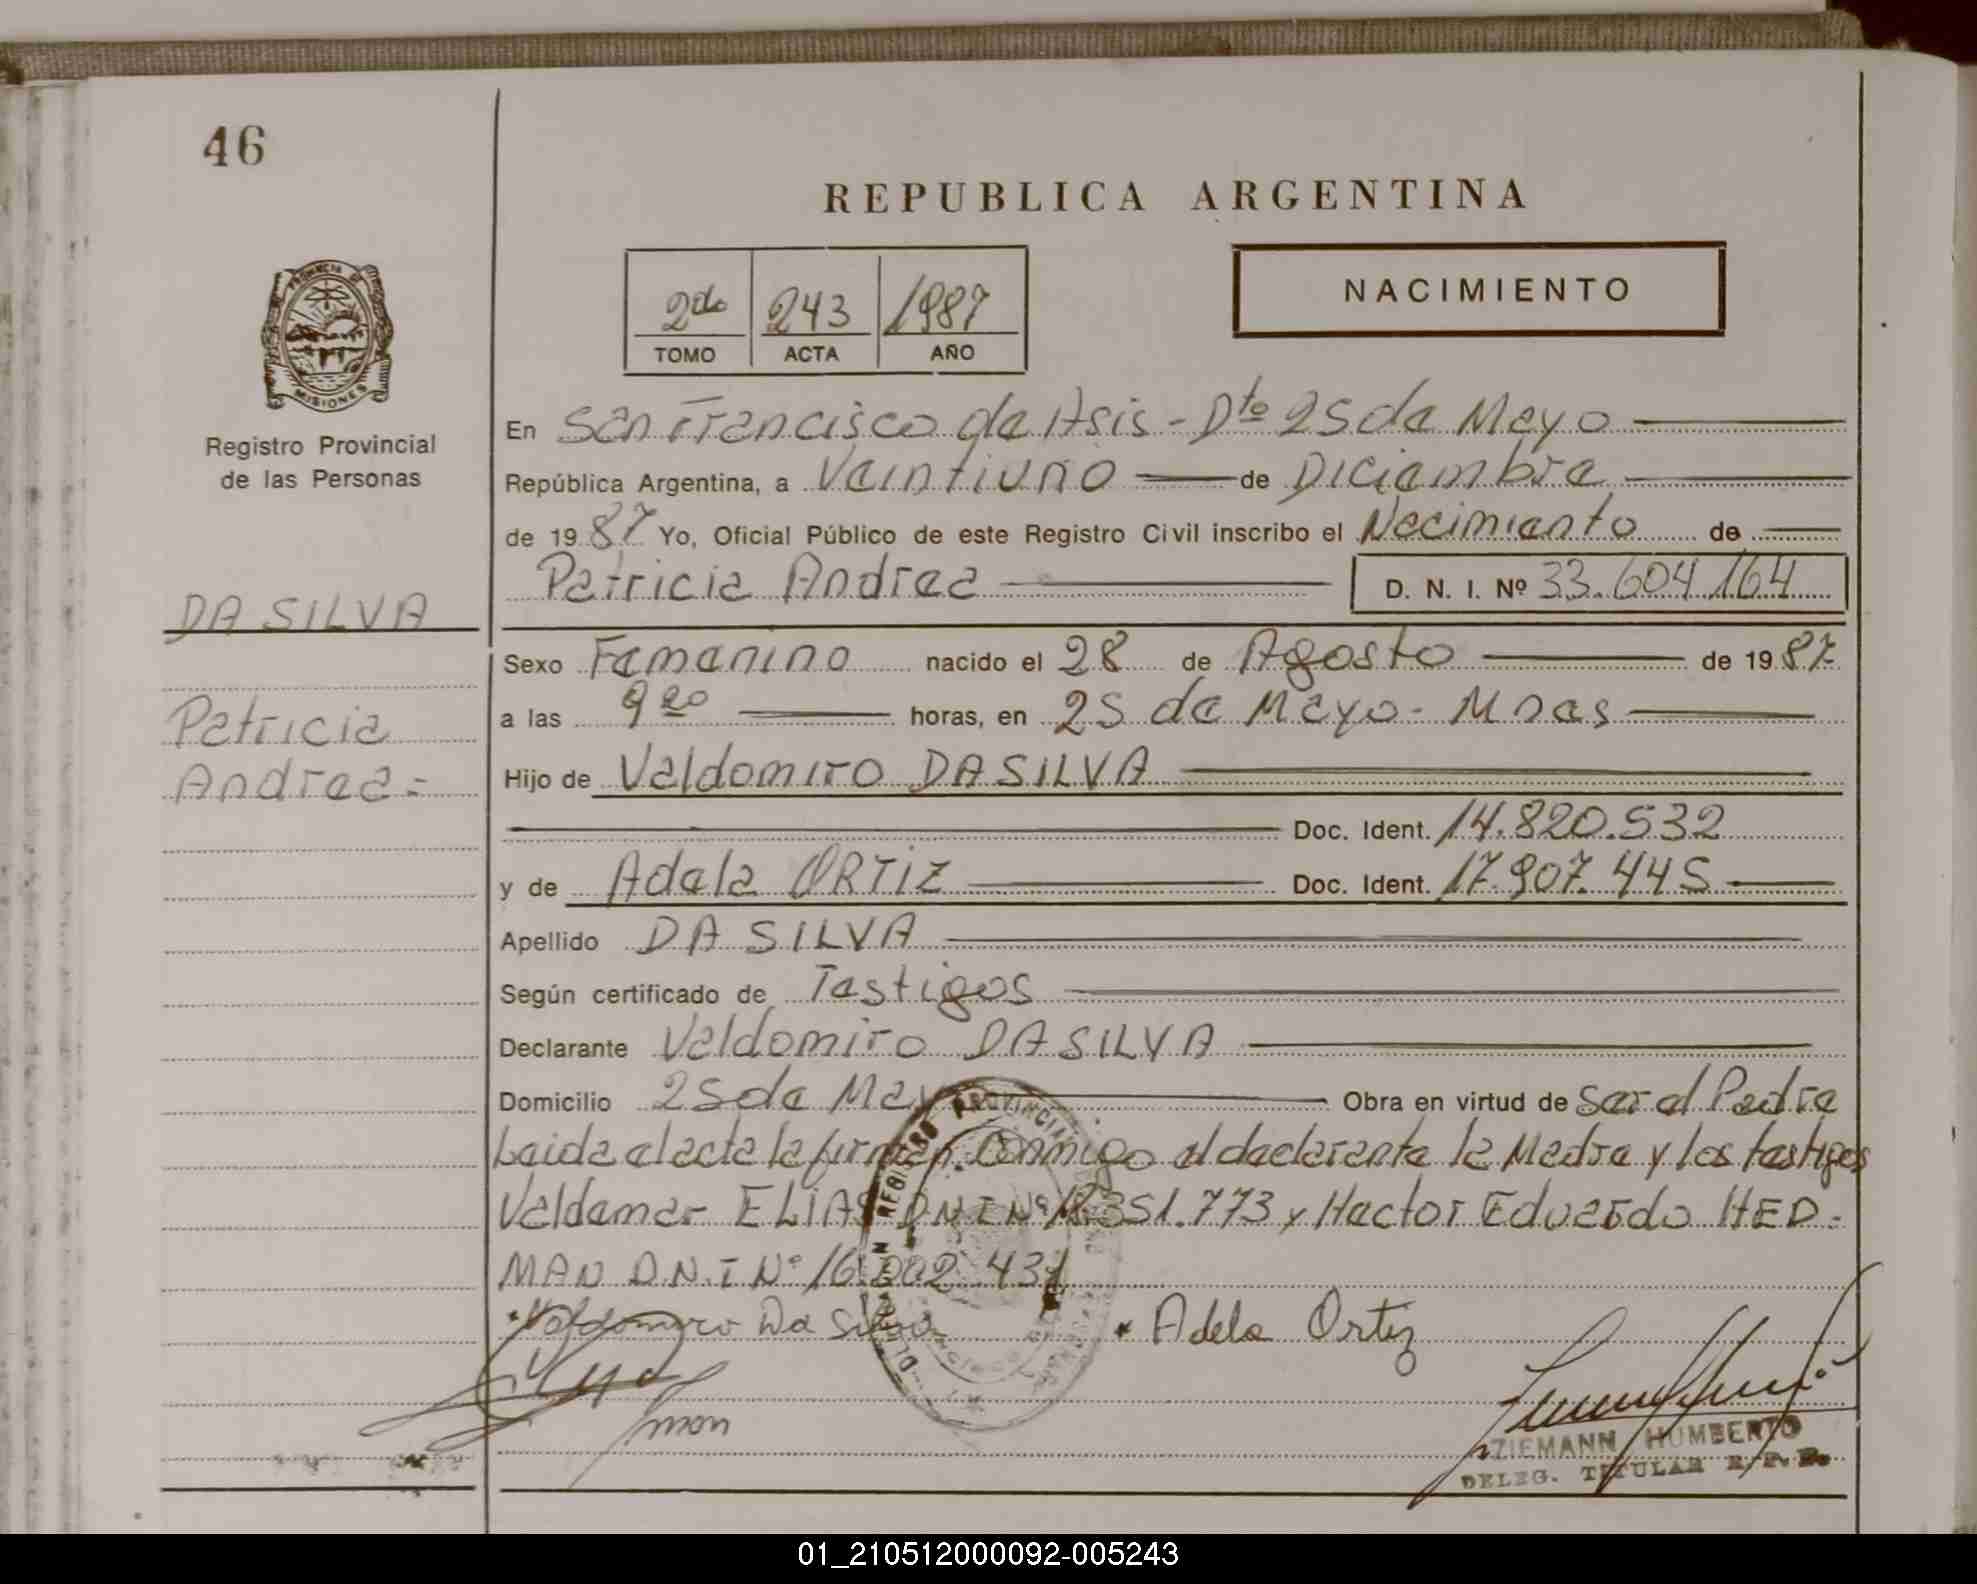 46
REPUBLICA ARGENTINA
NACIMIENTO
2do 243 1987
TOMO ACTA AÑO
PROVINCIA DE
MISIONES
Registro Provincial
de las Personas
En San Francisco de Asis - Dto 25 de Mayo
República Argentina, a Veintiuno de Diciembre
de 1987 Yo, Oficial Público de este Registro Civil inscribo el Nacimiento de
Patricia Andrea D. N. I. Nº 33.604.164
DA SILVA
Patricia
Andrea=
Sexo Femenino nacido el 28 de Agosto de 1987
a las 9 20 horas, en 25 de Mayo - Mnes
Hijo de Valdomiro DA SILVA
Doc. Ident. 14.820.532
y de Adela ORTIZ Doc. Ident. 17.907.445
Apellido DA SILVA
Según certificado de Testigos
Declarante Valdomiro DA SILVA
Domicilio 25 de Mayo Obra en virtud de ser el Padre
Leida el acta la firman conmigo el declarante la Madre y los testigos
Valdemar ELIAS DNI Nº 18.351.773 y Hector Eduardo HED-
MAN D.N.I Nº 16.002.431
Valdomiro Da Silva Adela Ortiz
ZIEMANN HUMBERTO
DELEG. TITULAR R.P.P.
01_210512000092-005243